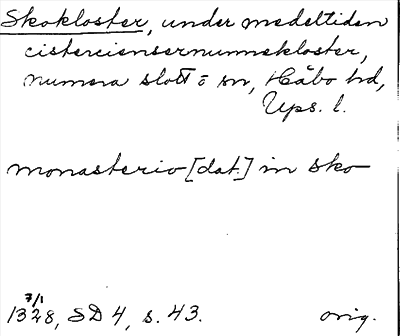 Skokloster, under medeltiden
cisterciensernunnekloster,
numera slott o sn, Håbo hd,
Ups. l.
monasterio [dat.] in sko
7/1
1328, SD 4, s. 43. orig.